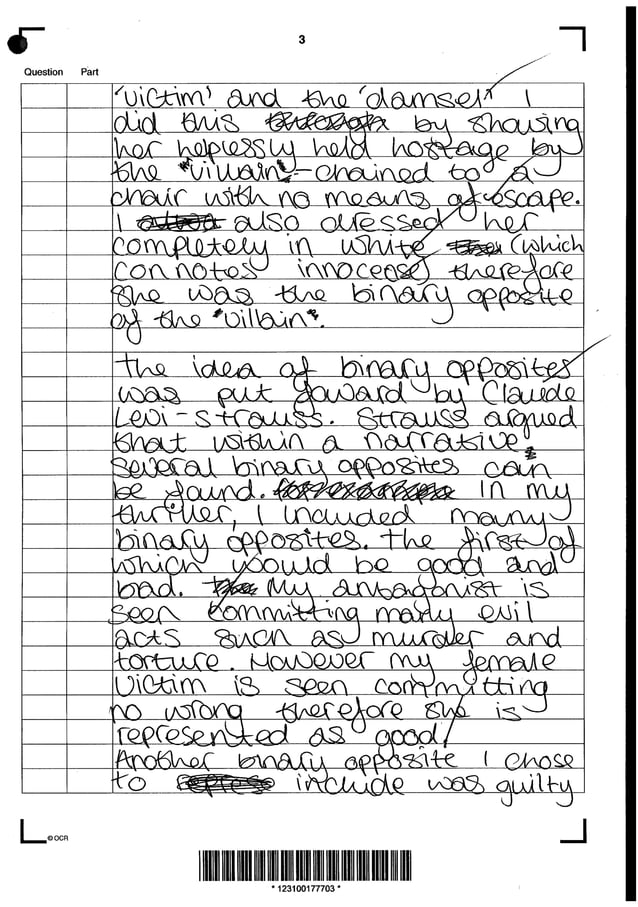 3
Question Part
'victim' and the 'damsel'. I
did this by showing
her helplessly held hostage by
the "villain" - chained to a
chair with no means of escape.
I also dressed her
completely in white (which
connotes innocense) therefore
she was the binary opposite
of the "villain".
The idea of binary opposites
was put foward by Claude
Levi-Strauss. Strauss argued
that within a narrative,
several binary opposites can
be found. In my
thriller, I included many
binary opposites. The first of
which would be good and
bad. My antagonist is
seen committing many evil
acts such as murder and
torture. However my female
victim is seen committing
no wrong therefore she is
represented as good.
Another binary opposite I chose
to include was guilty
© OCR
* 123100177703 *